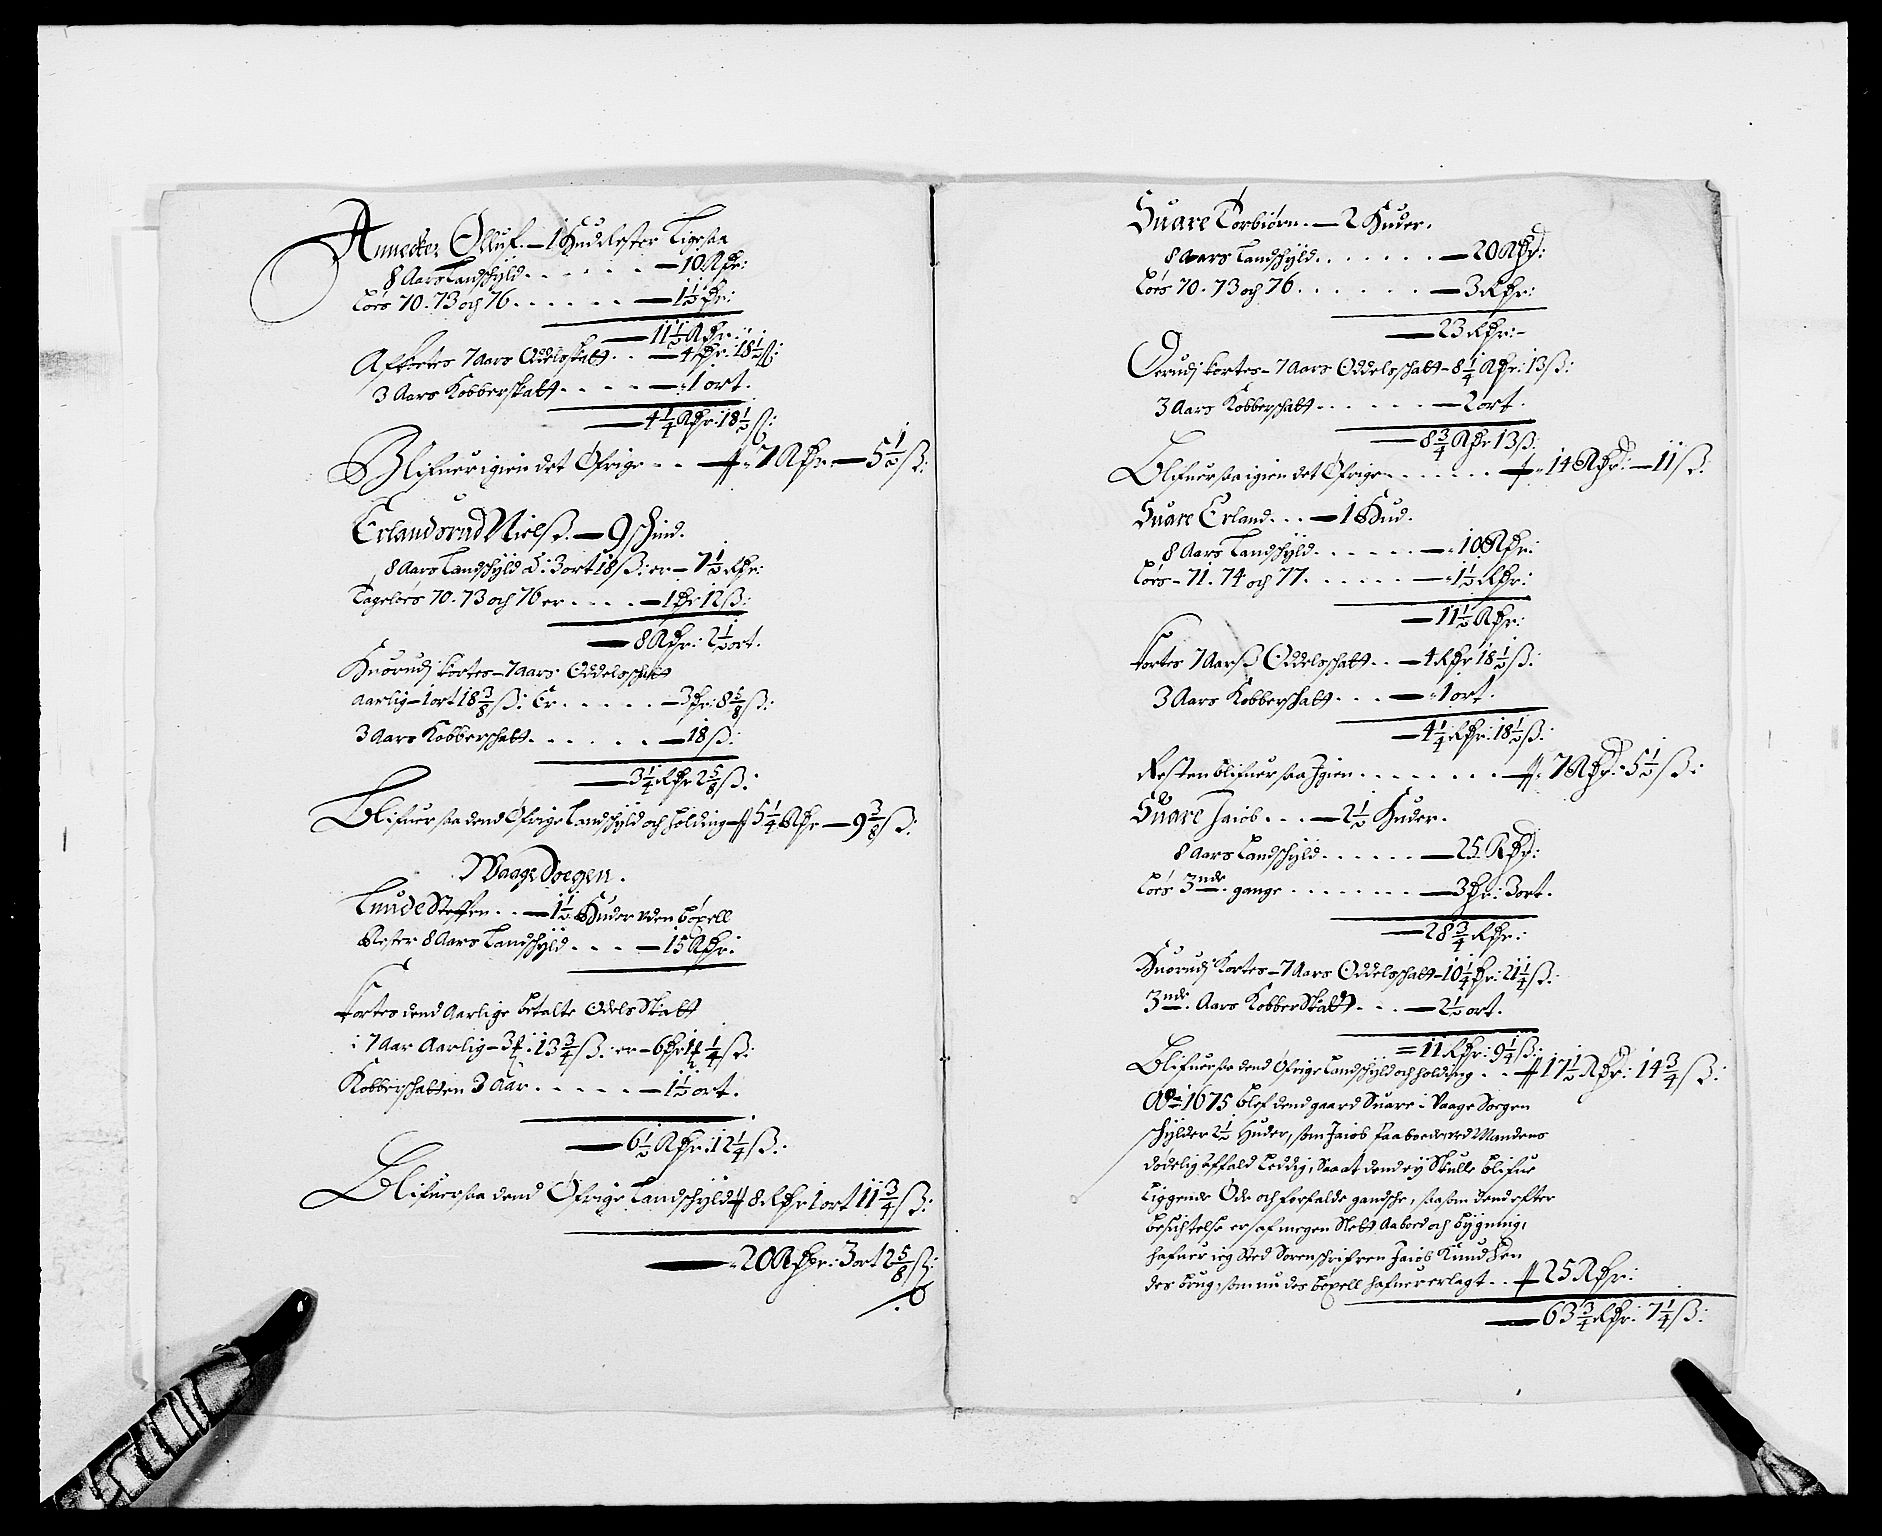 Annecker Olluf. — 1 Hud lester ligesaa
8 Aars Landschyld . . . . . . — 10 Rdr:
Tøes 70. 73 och 76 . . . . . . — 1½ dr:
— 11½ Rdr:
Afkortes 7 Aars Oddelsskatt . . — 4 dr: 18½ ß:
3 Aars Kobberskatt . . . . . — 1 ort.
— 4¼ Rdr: 18½ ß:
Blifuer igien det Øfrige . . — 7 Rdr — 5½ ß:
Erlandsrud Nielß. — 9 schind.
8 Aars Landschyld à: 3 ort 18 ß: er — 7½ Rdr:
Tageløes 70. 73 och 76 er . . . . — 1 dr 12 ß:
— 8 Rdr: 2½ ort.
Huorudj kortes — 7 Aars Oddelsschatt
aarlig — 1 ort 18 3/8 ß: Er . . . . . — 3 dr: 8 5/8 ß:
3 Aars Kobberschatt . . . . . . — 18 ß:
— 3¼ Rdr 2 5/8 ß:
Blifuer saa dend Øfrige Landschyld och holding — 5¼ Rdr — 9 3/8 ß:
Waage Soegen.
Lunde Steffen . . — 1½ Huder uden bøxell
Rester 8 Aars Landschyld . . . . — 15 Rdr:
Kortes dend Aarlige betalte Odels Skatt
i 7 Aar Aarlig — 3 : 13¾ ß: er — 6 dr 1 ¼ ß:
Kobberschatten 3 Aar . . . . . — 1½ ort.
— 6½ Rdr: 12¼ ß:
Blifuer saa dend Øfrige Landschyld 8 Rdr 1 ort 11¾ ß:
— 20 Rdr: 3 ort 2 5/8 ß:
Suare Torbiørn. — 2 Huder.
8 Aars Landschyld . . . . . . . — 20 Rdr:
Tøes 70. 73 och 76 . . . . . . — 3 Rdr:
— 23 Rdr: –
Derudj kortes — 7 Aars Oddelsschatt — 8¼ Rdr: 13 ß:
3 Aars Kobberschatt . . . . . . — 2 ort.
— 8¾ Rdr 13 ß:
Blifuer saa igien det Øfrige . . . . . . . — 14 Rdr: — 11 ß:
Suare Erland . . . — 1 Hud.
8 Aars Landschyld . . . . . . — 10 Rdr:
Tøes — 71. 74 och 77 . . . . . . — 1½ Rdr:
— 11½ Rdr:
Kortes 7 Aarß Oddelsschatt . . — 4 Rdr 18½ ß:
3 Aars Kobberschatt . . . — 1 ort.
— 4¼ Rdr: 18½ ß:
Resten blifuer saa Igien . . . . . . . . — 7 Rdr: 5½ ß:
Suare Jaiob . . . — 2½ Huder.
8 Aars Landschyld . . . . . . — 25 Rdr:
Tøes 3nde. gange . . . . . . . . — 3 dr: 3 ort.
— 28¾ Rdr:
Huorudj Kortes — 7 Aars Oddelsschatt — 10¼ dr: 21¼ ß:
3nde. Aars Kobber Skatt . . . — 2½ ort.
= 11 Rdr: 9¼ ß:
Blifuer saa dend Øfrige Landschyld och holding . . 17½ Rdr: 14¾ ß:
Ao 1675 blef dend gaard Suare i Vaage Soegen
schylder 2½ Huder, som Jaiob paaboede ved Mandens
dødelig affald Leddig, Saa at dend ej Skulle blifue
liggende Øde och forfalde gandsche, saasom dend efter
besichtelse er af megen slett Aaboed och bygning,
hafuer ieg Sted Sorenschrifren Jaiob Knudsen
des brug, som nu des bøxell hafuer erlagt . . 25 Rdr:
— 63¾ Rdr: 7¼ ß: